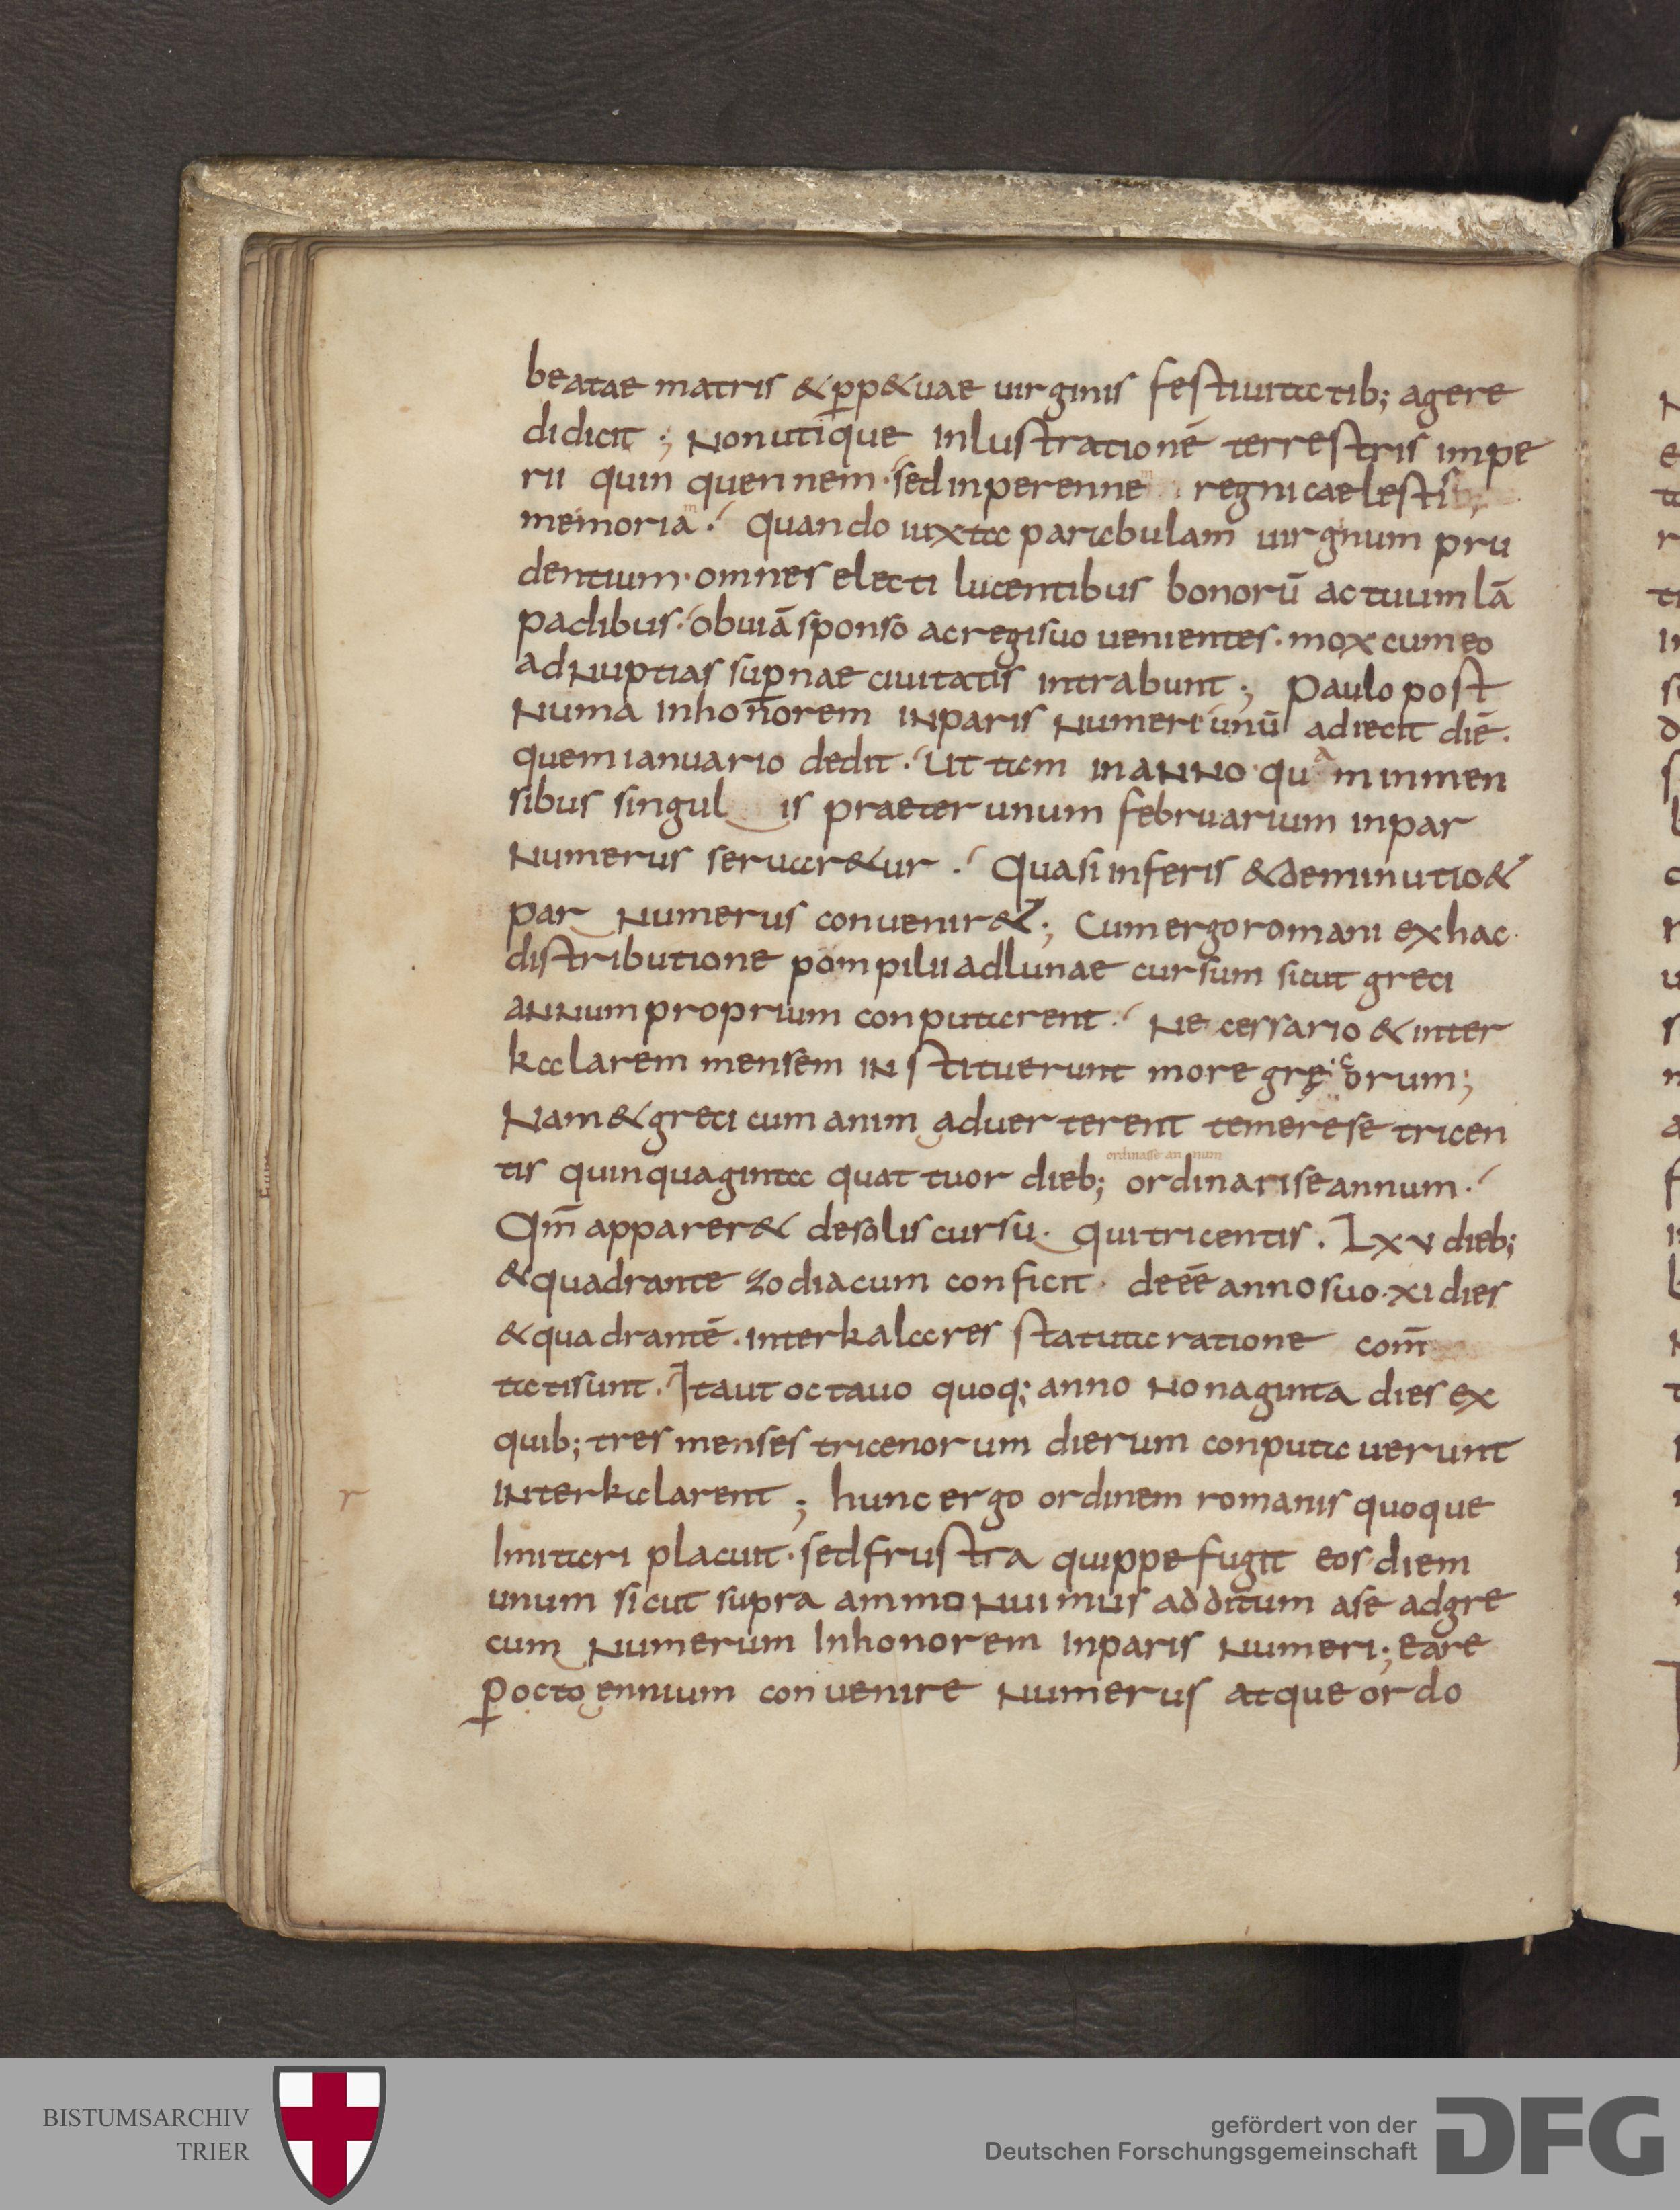 beatae matris & ꝑp&uae uirginis festiuitatib; agere
didicit ; Non utique inlustrationē terrestris impe
rii quinquennem · sed in perennem regni caelestis
memoriam · Quando iuxta parabulam uirginum pru
dentium · omnes electi lucentibus bonorū actuum lā
padibus · obuiā sponso ac regi suo uenientes · mox cum eo
ad Nuptias suꝑnae ciuitatis intrabunt ; Paulo post
Numa in honorem inparis Numeri unū adiecit diē ·
quem ianuario dedit · Ut tam in anno quam in men
sibus singulis praeter unum februarium inpar
Numerus seruar&ur · Quasi inferis & deminutio &
par Numerus conuenir& ; Cum ergo romani ex hac
distributione pompilii ad lunae cursum sicut greci
annum proprium conputarent · Necessario & inter
kalarem mensem instituerunt more gręcorum ;
Nam & greci cum animaduerterent temere se tricen
tis quinquaginta quattuor dieb;
ordinasse annum
ordinari se annum ·
Qm̄ apparer& de solis cursu · qui tricentis · Lxv dieb;
& quadrante zodiacum conficit · deeē anno suo · xi dies
& quadrantē · interkalares statuta ratione com̄
tati sunt · Ita ut octauo quoq; anno Nonaginta dies ex
quib; tres menses tricenorum dierum conputauerunt
interkalarent ; hunc ergo ordinem romanis quoque
r
Imitari placuit · sed frustra quippe fugit eos diem
unum sicut supra ammonuimus additum a se ad gre
cum Numerum In honorem inparis Numeri ; ea re
ꝑ octoennium conuenire Numerus atque ordo
BISTUMSARCHIV
TRIER
gefördert von der
Deutschen Forschungsgemeinschaft
DFG